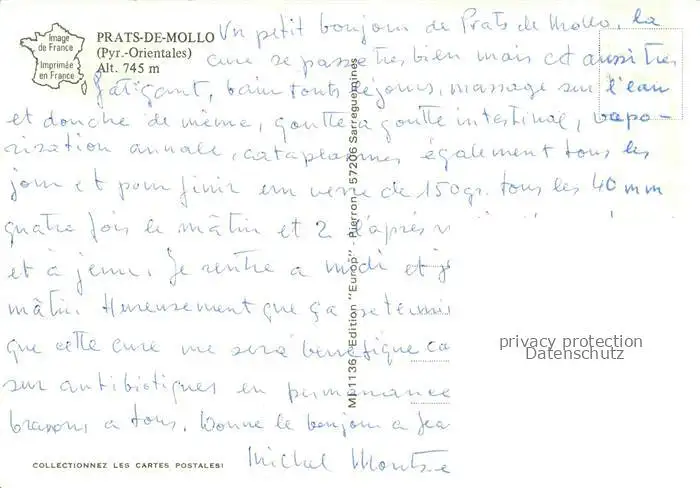 Image
de France
Imprimée
en France
PRATS-DE-MOLLO
(Pyr.-Orientales)
Alt. 745 m
Un petit bonjour de Prats de Mollo, la
cure se passe très bien mais est aussi très
fatigant, bain touts séjours, massage sur l'eau
et douche de même, goutte a goutte intestinal, vapo-
risation annale, cataplasmes également tous les
jour et pour finir un verre de 150gr. tous les 40 mm
quatre fois le mâtin et 2 l'après
et à jeun. Je rentre a midi et
mâtin. Heureusement que ça se termi
que cette cure me sera bénéfique ca
sur antibiotiques en permanance
brassons a tous. Donne le bonjour a
Michel
MP1136 - Edition "Europ" - Pierron - 57206 Sarreguemines
COLLECTIONNEZ LES CARTES POSTALES!
privacy protection
Datenschutz